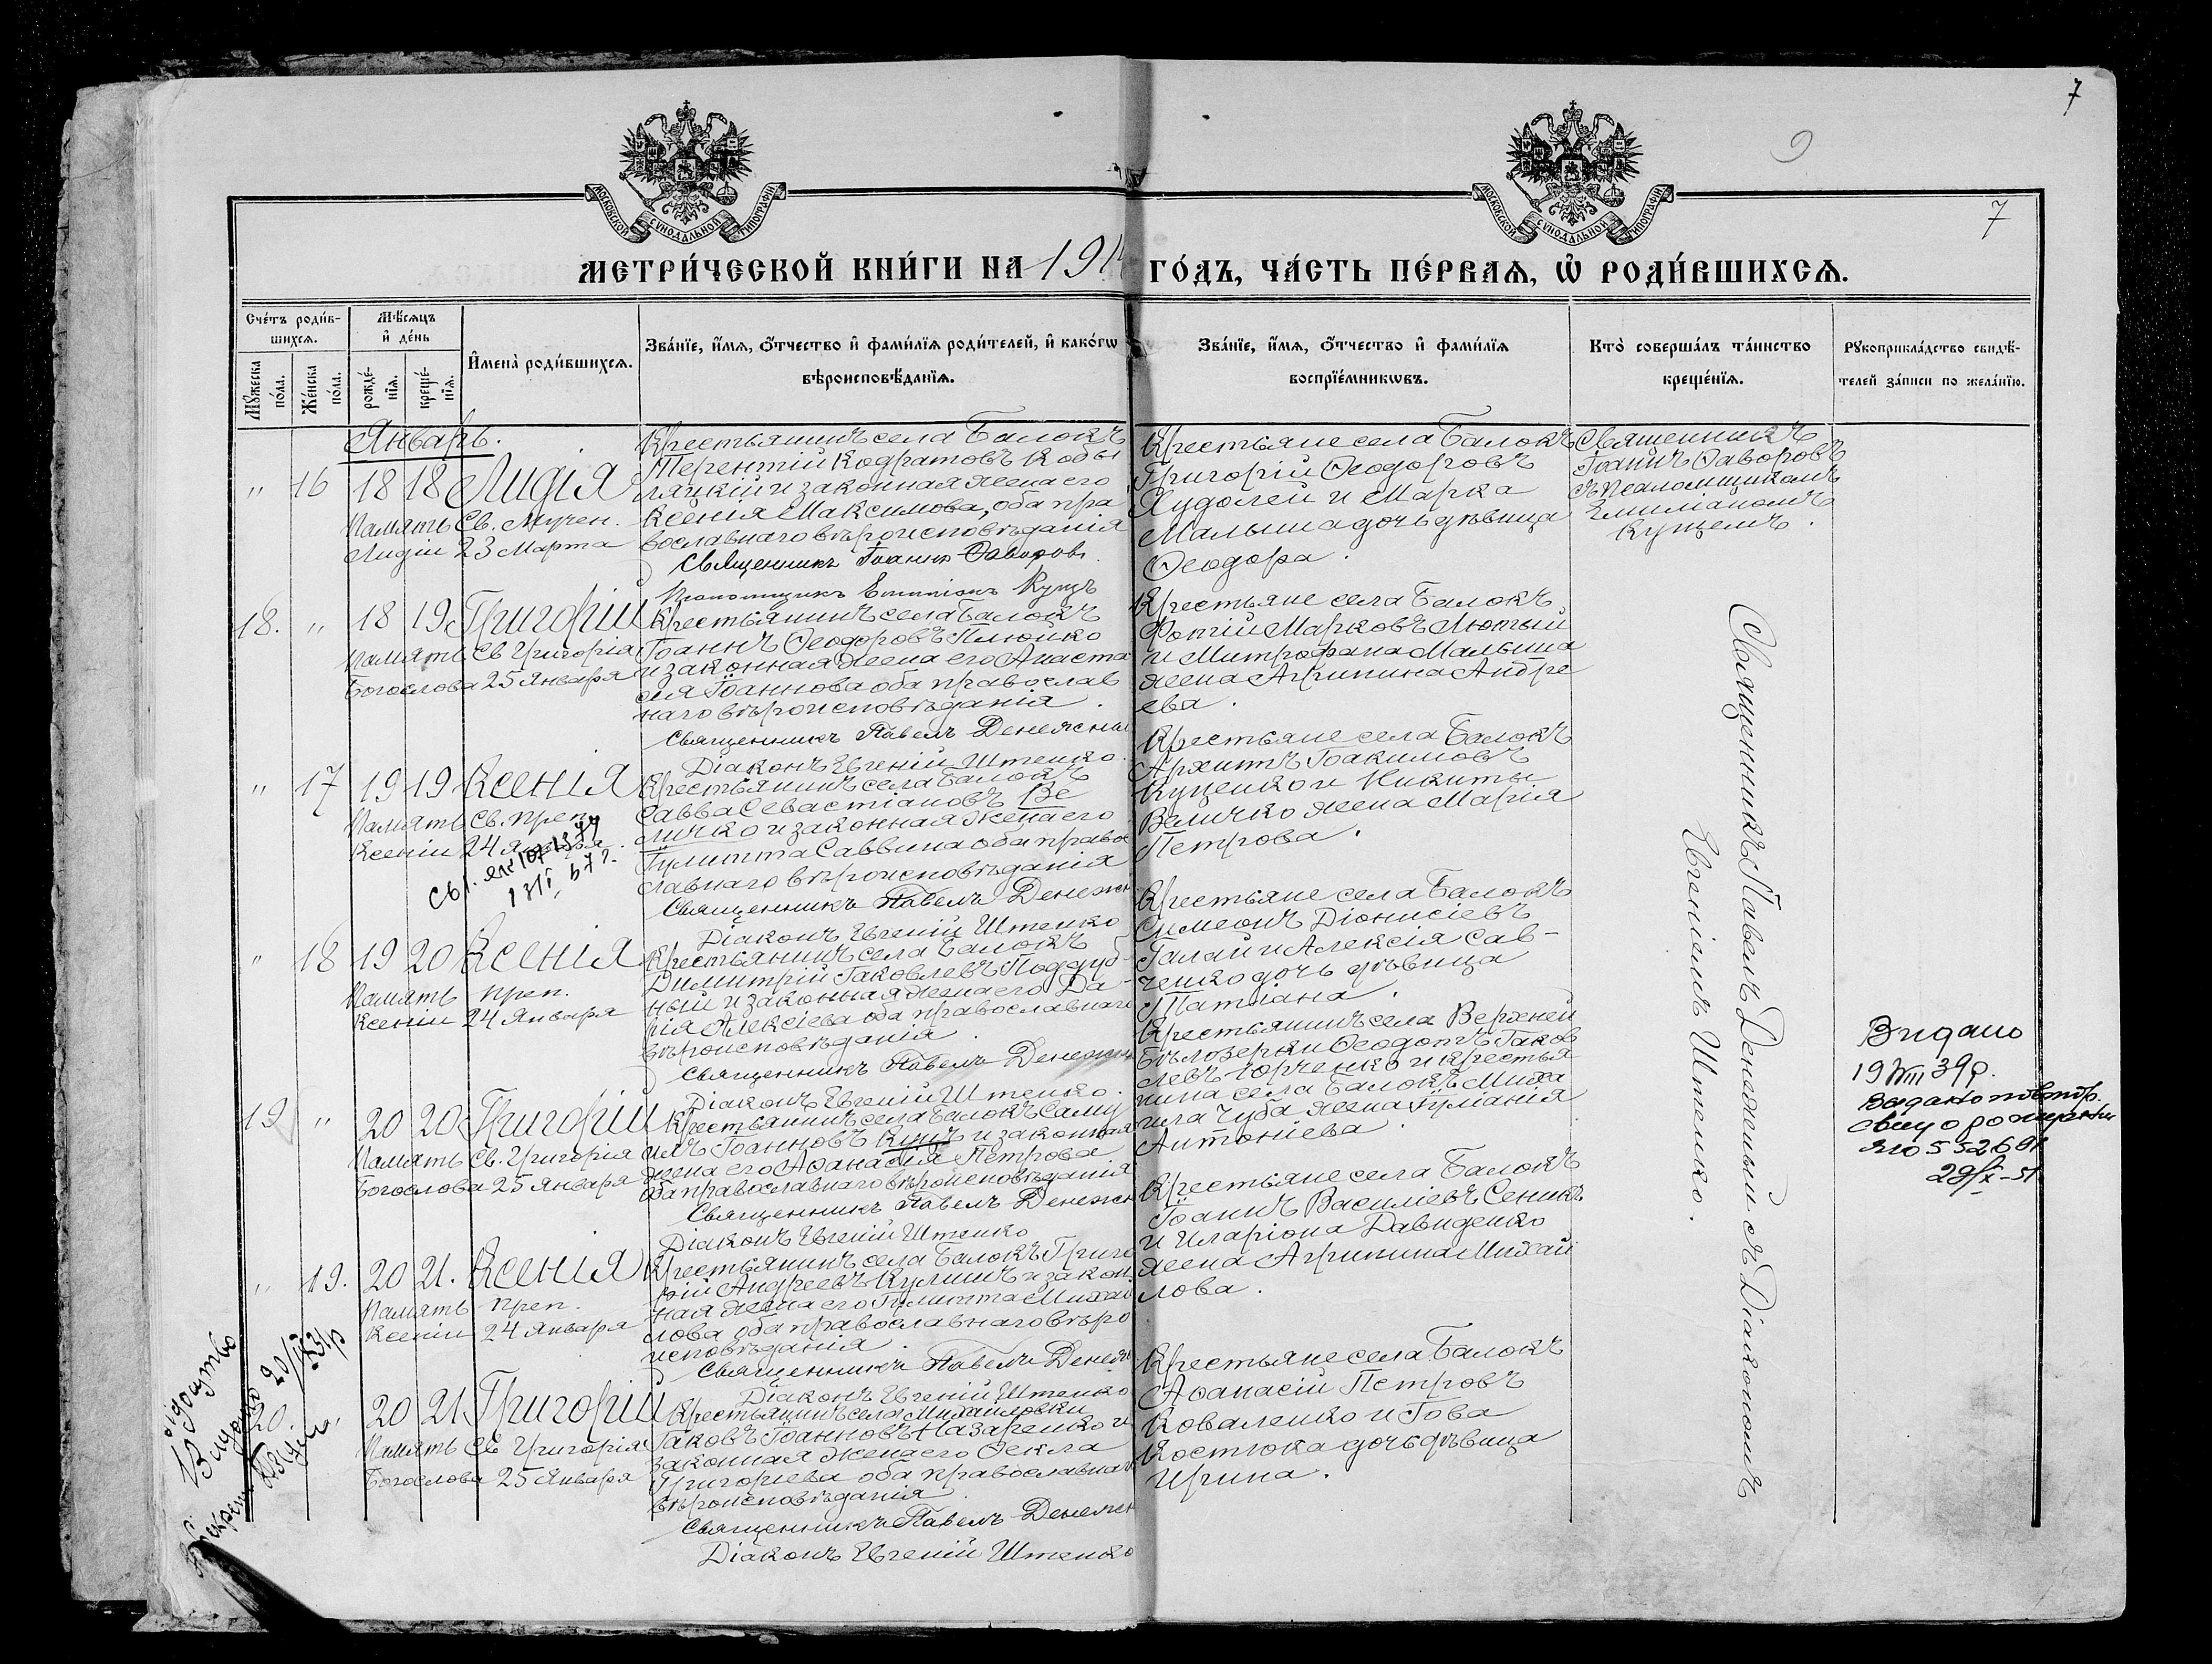 7
9
7
МОСКОВСКОЙ СѴНОДАЛЬНОЙ ТИПОГРАФІИ
МОСКОВСКОЙ СѴНОДАЛЬНОЙ ТИПОГРАФІИ
МЕТРИ́ЧЕСКОЙ КНИ́ГИ НА 191
ГО́ДЪ, ЧА́СТЬ ПЕ́РВАѦ, Ѽ РОДИ́ВШИХСѦ.
Сче́тъ роди́в-
шихсѧ.
Мꙋ́жеска по́ла.
Же́нска по́ла.
Мѣ́сѧцъ
и҆ де́нь
рожде́-
нїѧ.
креще́-
нїѧ.
И҆мена̀ роди́вшихсѧ.
Зва́нїе, и҆́мѧ, ѻ҆́тчество и҆ фами́лїѧ роди́телей, и҆ како́гѡ
вѣроисповѣ́данїѧ.
Зва́нїе, и҆́мѧ, ѻ҆́тчество и҆ фами́лїѧ
воспрїе́мникѡвъ.
Кто̀ соверша́лъ та́инство
креще́нїѧ.
Рꙋкоприкла́дство свидѣ́-
телей за́писи по жела́нїю.
Январь.
" 16 18 18 Лидія
Память Св. Мучен.
Лидіи 23 Марта
Крестьянинъ села Балокъ
Терентій Кодратовъ Кобы
ляцкій и законная жена его
Ксенія Максимова, оба пра
вославнаго вѣроисповѣданія
Священникъ Іоаннъ Ѳаворовъ
Псаломщикъ Емиліанъ Кущъ
Крестьяне села Балокъ
Григорій Ѳеодоровъ
Худолей и Марка
Малыша дочь дѣвица
Ѳеодора.
Священникъ
Іоаннъ Ѳаворовъ
съ Псаломщикомъ
Емиліаномъ
Кущемъ.
18. " 18 19 Григорій
Память Св Григорія
Богослова 25 Января
Крестьянинъ села Балокъ
Іоаннъ Ѳеодоровъ Плюйко
и законная жена его Анаста
сія Іоаннова оба православ
наго вѣроисповѣданія.
Священникъ Павелъ Денежны
Діаконъ Евгеній Штепко.
Крестьяне села Балокъ
Фотій Марковъ Лютый
и Митрофана Малыша
жена Агрипина Андре
ева.
" 17 19 19 Ксенія
Память Св. Преп.
Ксеніи 24 Января.
Крестьянинъ села Балокъ
Савва Севастіановъ Ве
личко и законная жена его
Іулитта Саввина оба право
славнаго вѣроисповѣданія
Священникъ Павелъ Денежн
Діаконъ Евгеній Штепко
Крестьяне села Балокъ
Архиппъ Іоакимовъ
Куценко и Никиты
Величко жена Марія
Петрова.
" 18 19 20 Ксенія
Память Преп.
Ксеніи 24 Января
Крестьянинъ села Балокъ
Димитрій Іаковлевъ Поддуб-
ный и законная жена его Да-
рія Алексіева оба православнаго
вѣроисповѣданія.
Священникъ Павелъ Денежн
Діаконъ Евгеній Штепко.
Крестьяне села Балокъ
Симеонъ Діонисіевъ
Галай и Алексія Сав-
ченко дочь дѣвица
Татіана.
19 " 20 20 Григорій
Память Св. Григорія
Богослова 25 Января
Крестьянинъ села Балокъ Саму
илъ Іоанновъ Кущъ и законная
жена его Аѳанасія Петрова
оба православнаго вѣроисповѣданія
Священникъ Павелъ Денежн
Діаконъ Евгеній Штепко
Крестьянинъ села Верхней
Бѣлозерки Ѳеодотъ Іаков
левъ Юрченко и крестья
нина села Балокъ Миха
ила Чуба жена Іуліанія
Антоніева.
Видано
19 VIII 39р.
Выдано повтор.
свид о рождении
ЯЮ 552691
29/X-51
" 19. 20 21. Ксенія
Память Преп.
Ксеніи 24 Января
Крестьянинъ села Балокъ Григо
рій Андреевъ Кулишъ и закон
ная жена его Іулитта Михаи
лова оба православнаго вѣро
исповѣданія.
Священникъ Павелъ Денежн
Діаконъ Евгеній Штепко
Крестьяне села Балокъ
Іоаннъ Василіевъ Сеникъ
и Иларіона Давиденко
жена Агрипина Михаи
лова.
20. " 20 21 Григорій
Память Св Григорія
Богослова 25 Января
Крестьянинъ села Михайловки
Іаковъ Іоанновъ Назаренко и
законная жена его Ѳекла
Григоріева оба православнаго
вѣроисповѣданія.
Священникъ Павелъ Денежн
Діаконъ Евгеній Штепко
Крестьяне села Балокъ
Аѳанасій Петровъ
Коваленко и Іова
Костюка дочь дѣвица
Ирина.
Священникъ Павелъ Денежный съ Діакономъ
Евгеніемъ Штепко.